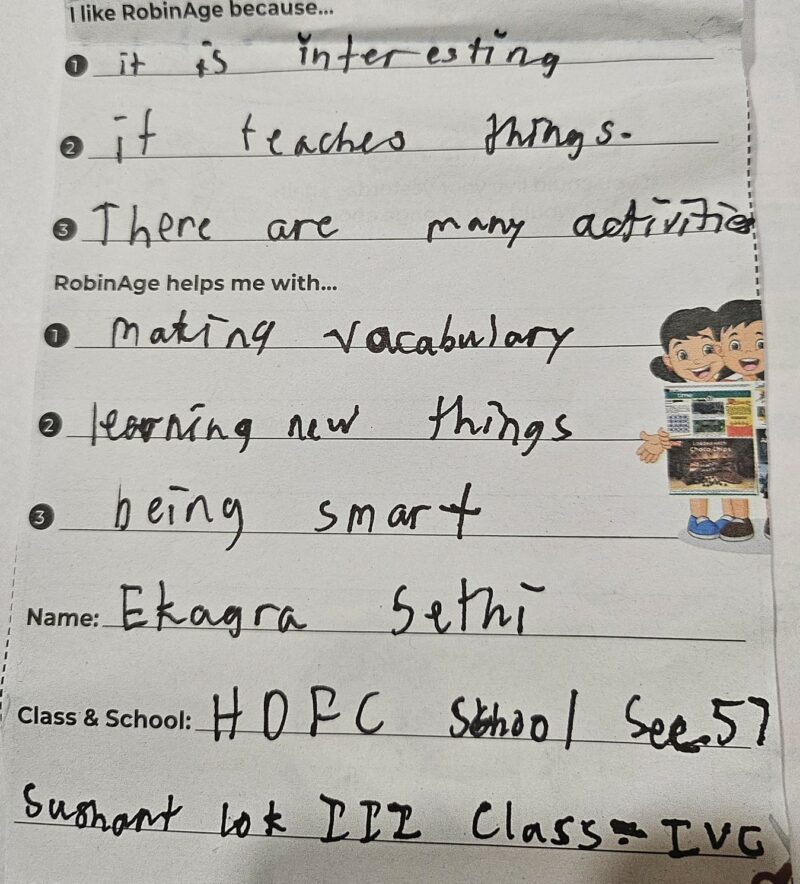 I like RobinAge because...
1 it is interesting
2 it teaches things.
3 There are many activities
RobinAge helps me with...
1 making vacabulary
2 learning new things
3 being smart
Name: Ekagra Sethi
Class & School: HDFC School Sec.57
Sushant lok III Class - IVG
Choco Chips